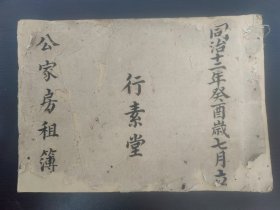 同治十二年癸酉歲七月吉
行素堂
公家房租簿